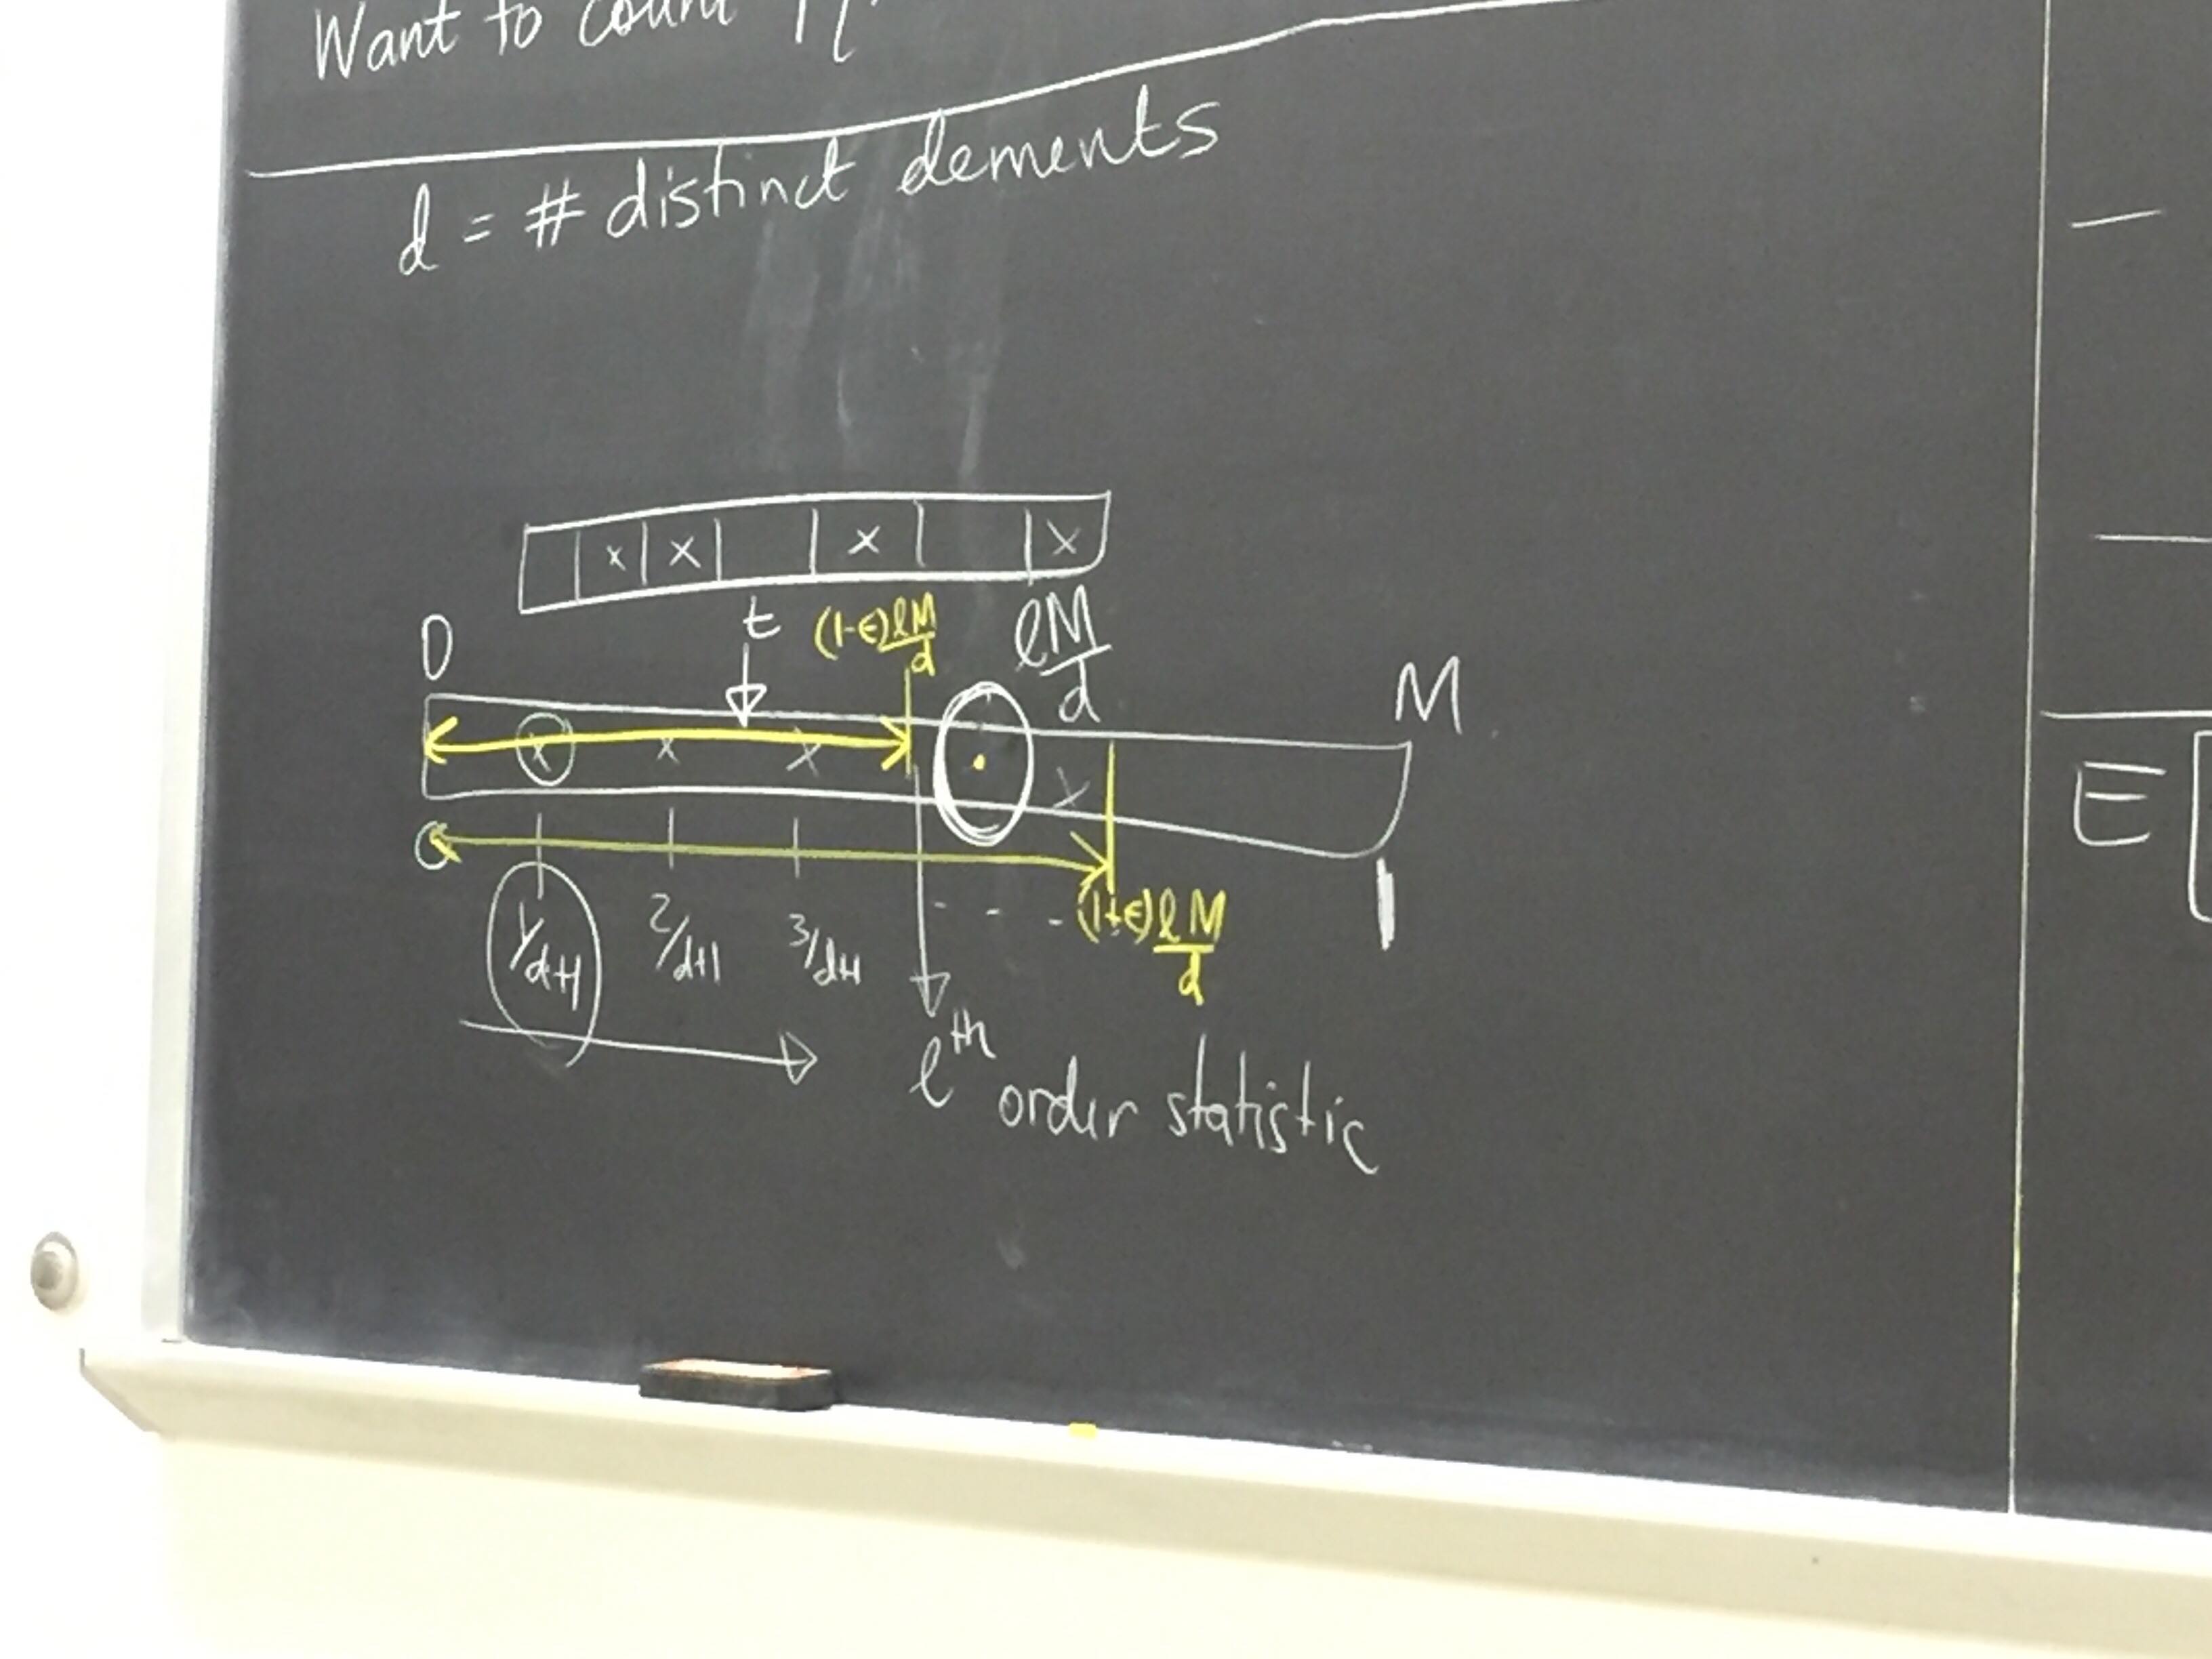 Want to count
d = # distinct elements
x x x x
t (1-ϵ)ℓM/d ℓM/d
0 M
x x x x
0 1
1/d+1 2/d+1 3/d+1 - - - (1+ϵ)ℓM/d
ℓth order statistic
E[